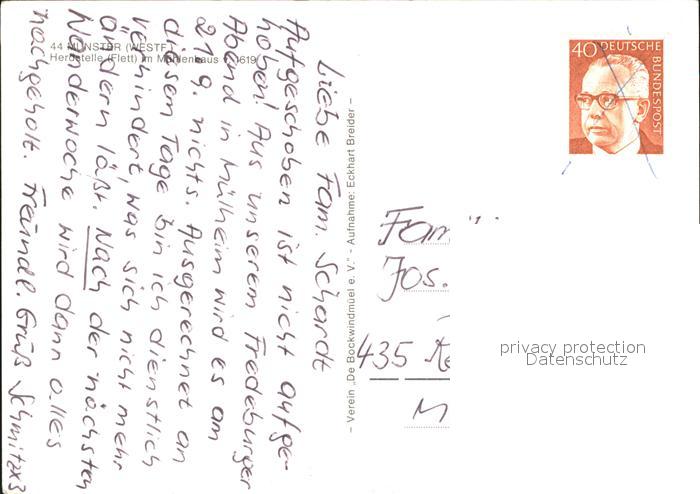 44 MÜNSTER (WESTF.)
Herdstelle (Flett) im Mühlenhaus 1619
Liebe Fam. Schardt
Aufgeschoben ist nicht aufge-
hoben! Aus unserem Fredeburger
Abend in Mülheim wird es am
21.9. nichts. Ausgerechnet an
diesem Tage bin ich dienstlich
verhindert, was sich nicht mehr
ändern läßt. Nach der nächsten
Wanderwoche wird dann alles
nachgeholt. Freundl. Gruß Schmitzx3
– Verein „De Bockwindmüel e. V." – Aufnahme: Eckhart Breider –
40 DEUTSCHE
BUNDESPOST
Fam
Jos.
435 Re
M
privacy protection
Datenschutz